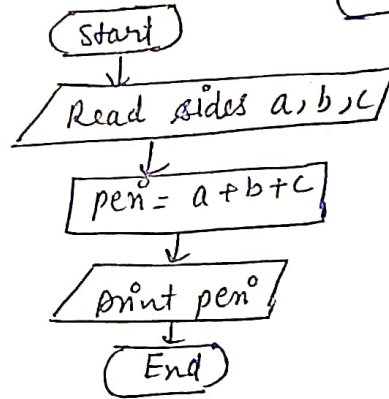 Start
Read sides a, b, c
peri = a + b + c
print peri
End